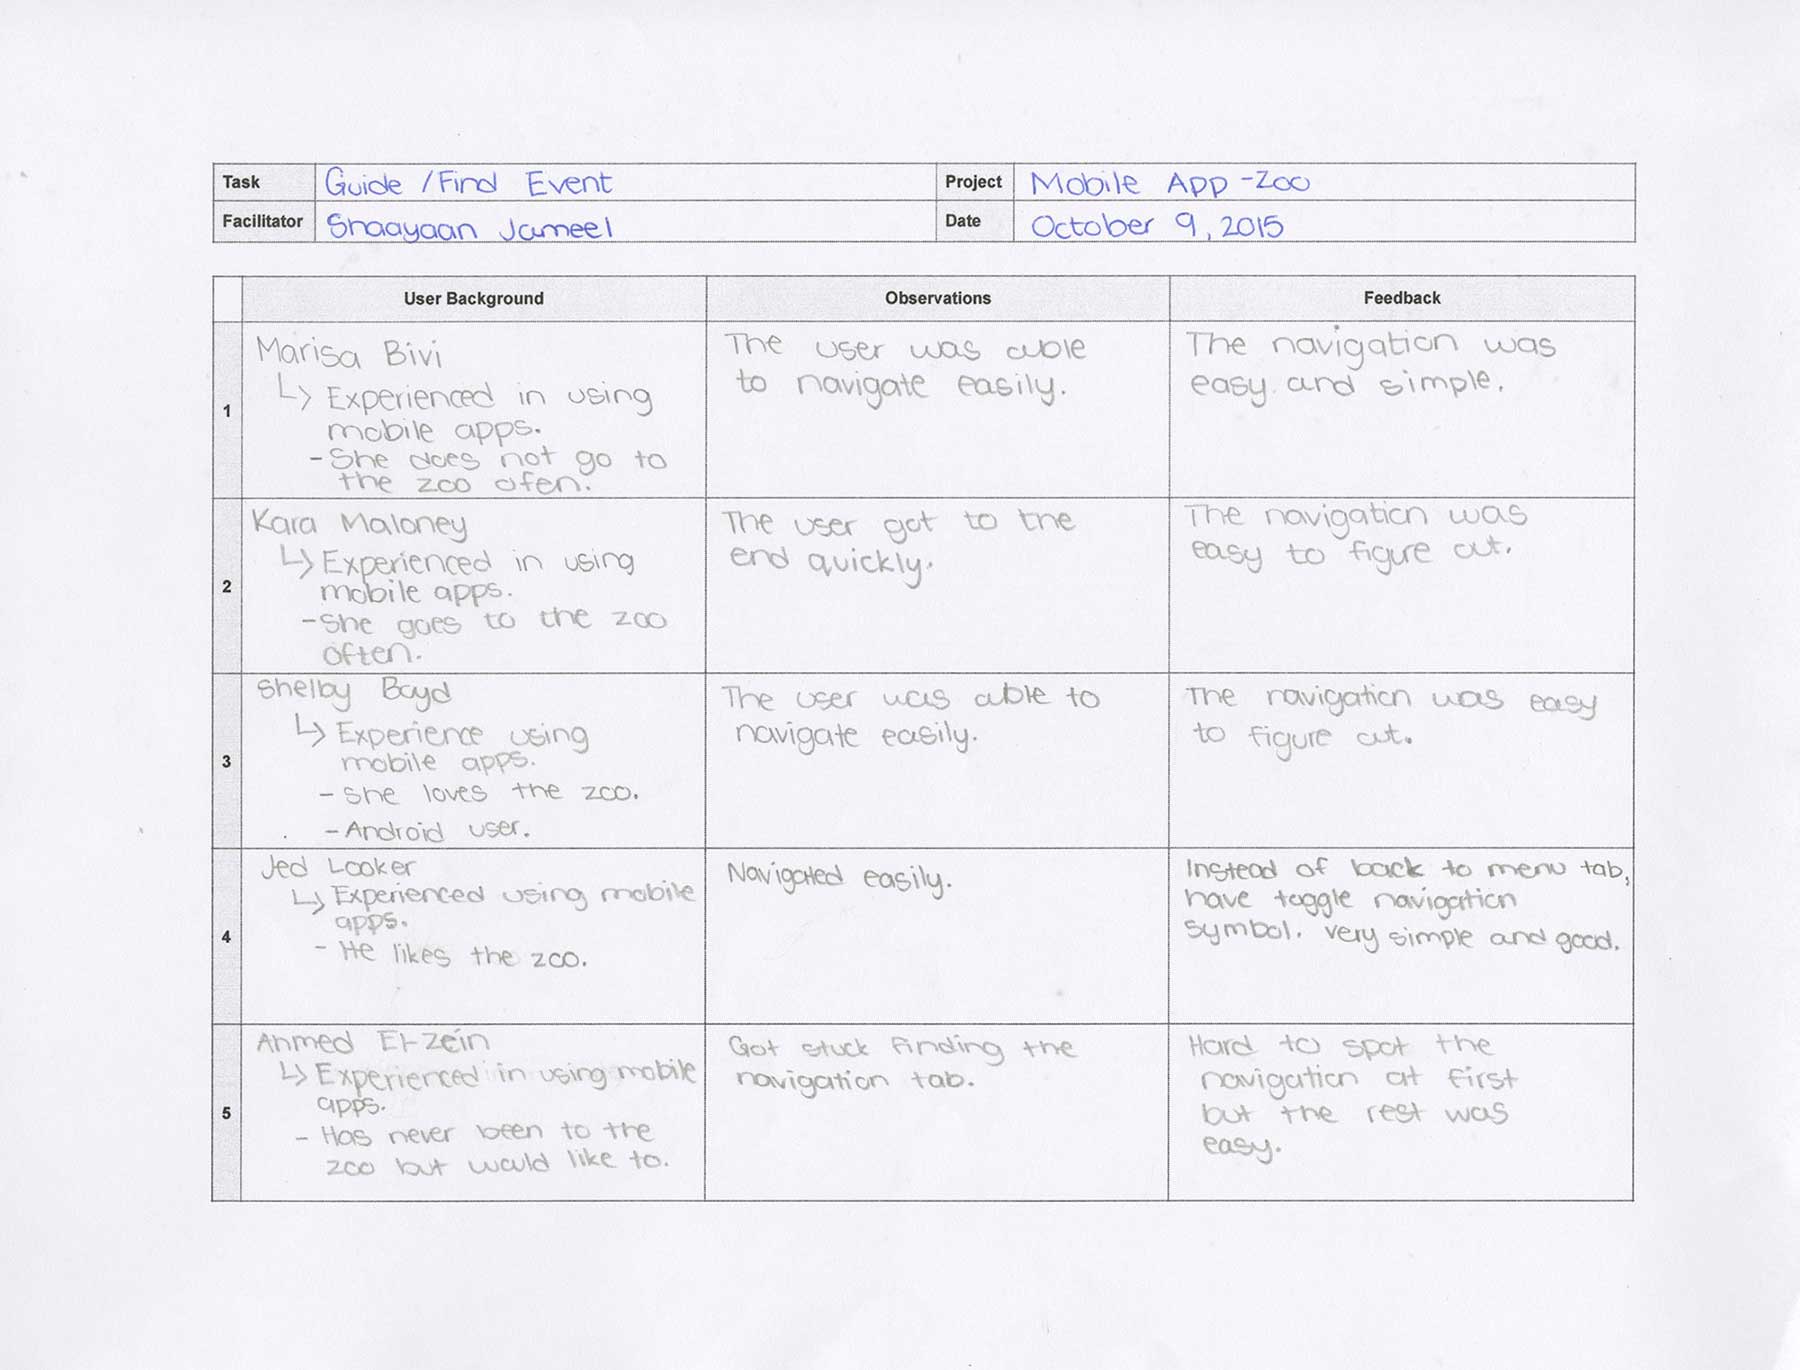 Task Guide / Find Event Project Mobile App - Zoo
Facilitator Shaayaan Jameel Date October 9, 2015
User Background Observations Feedback
1
Marisa Bivi
↳ Experienced in using
mobile apps.
- She does not go to
the zoo ofen.
The user was able
to navigate easily.
The navigation was
easy and simple.
2
Kara Maloney
↳ Experienced in using
mobile apps.
- She goes to the zoo
often.
The user got to the
end quickly.
The navigation was
easy to figure out.
3
Shelby Boyd
↳ Experience using
mobile apps.
- She loves the zoo.
- Android user.
The user was able to
navigate easily.
The navigation was easy
to figure out.
4
Jed Looker
↳ Experienced using mobile
apps.
- He likes the zoo.
Navigated easily.
Instead of back to menu tab,
have toggle navigation
symbol. Very simple and good.
5
Ahmed El-Zein
↳ Experienced in using mobile
apps.
- Has never been to the
zoo but would like to.
Got stuck finding the
navigation tab.
Hard to spot the
navigation at first
but the rest was
easy.